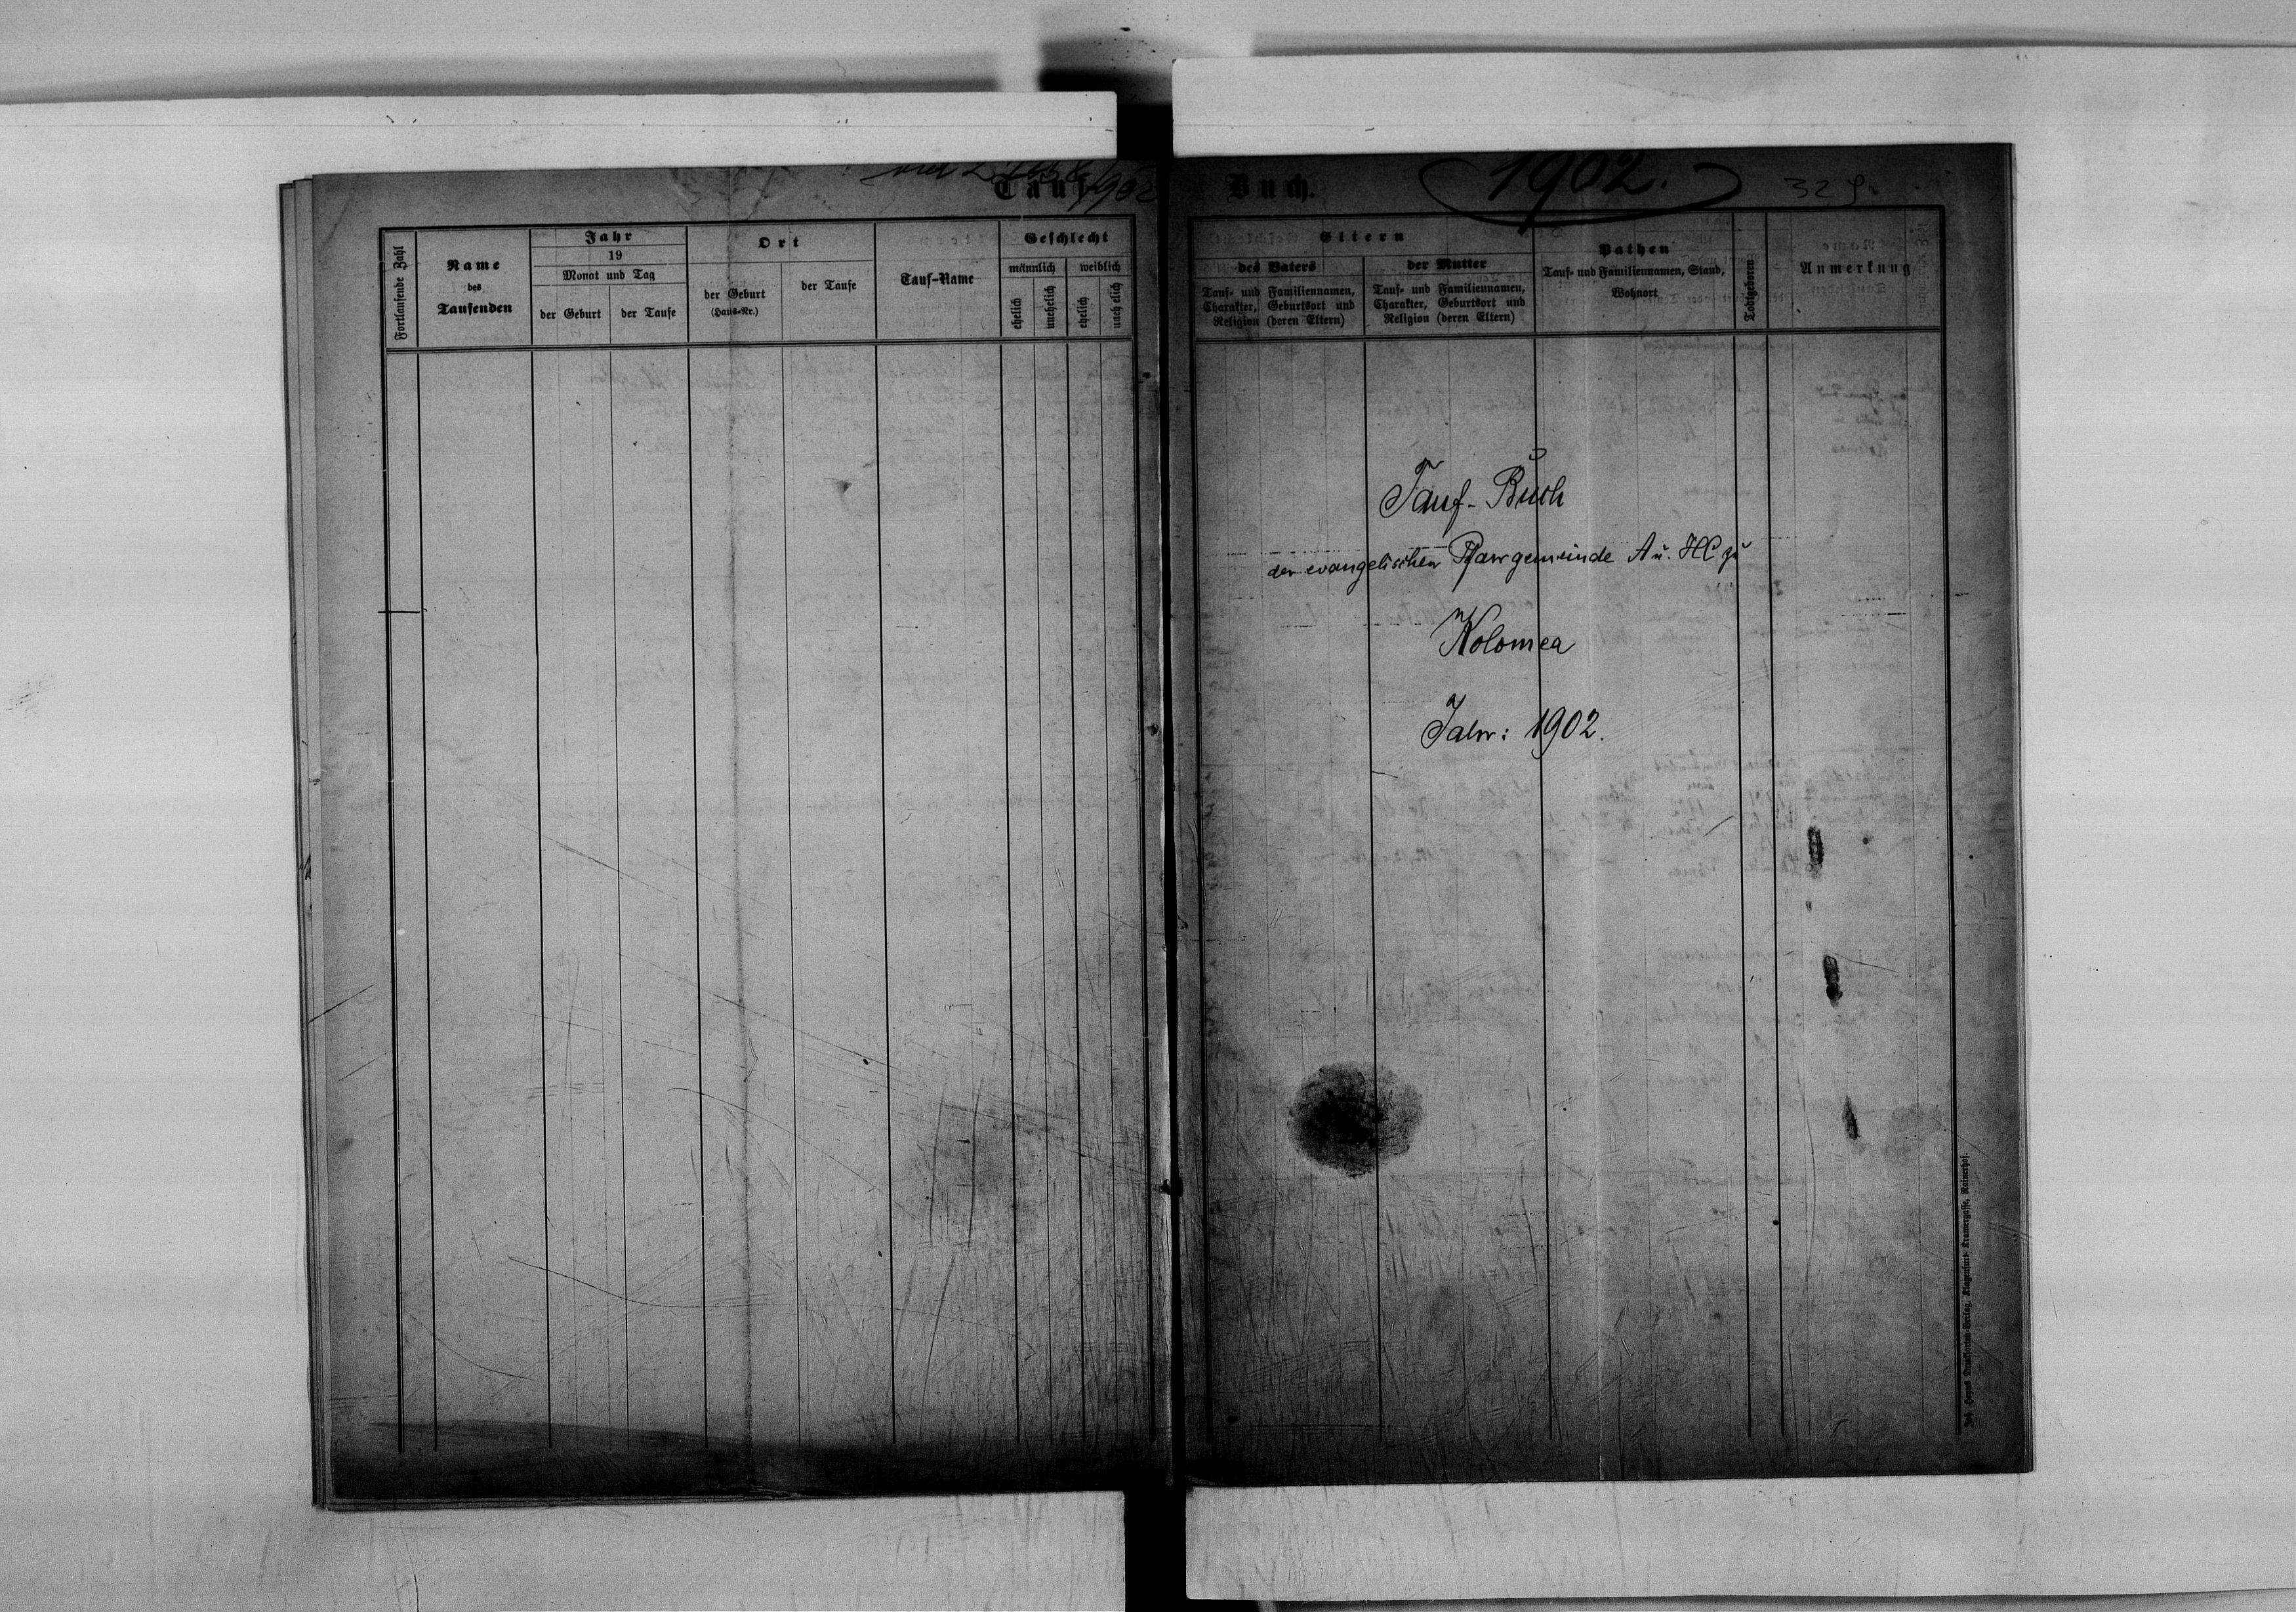 1902
Tauf
Buch.
1902.
Fortlaufende Zahl
Name
des
Taufenden
Jahr
19
Monat und Tag
der Geburt
der Taufe
Ort
der Geburt
(Haus-Nr.)
der Taufe
Tauf-Name
Geschlecht
männlich
weiblich
ehelich
unehelich
ehelich
unehelich
Eltern
des Vaters
Tauf- und Familiennamen,
Charakter, Geburtsort und
Religion (deren Eltern)
der Mutter
Tauf- und Familiennamen,
Charakter, Geburtsort und
Religion (deren Eltern)
Pathen
Tauf- und Familiennamen, Stand,
Wohnort
Todtgeboren
Anmerkung
Tauf-Buch
der evangelischen Pfarrgemeinde A u. HC zu
Kolomea
Jahr: 1902.
Verlag, Klagenfurt, Kramergasse, Rainerhof.